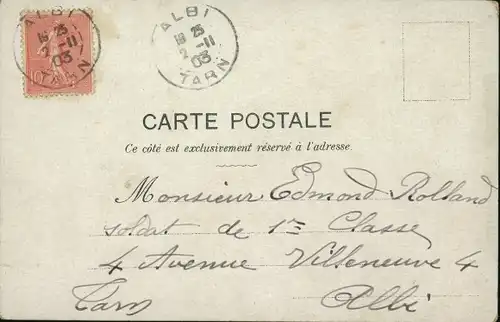 ALBI
18 25
2 -11
03
TARN
ALBI
18 25
2 -11
03
TARN
CARTE POSTALE
Ce côté est exclusivement réservé à l'adresse.
Monsieur Edmond Rolland
soldat de 1re Classe
4 Avenue Villeneuve 4
Tarn Albi